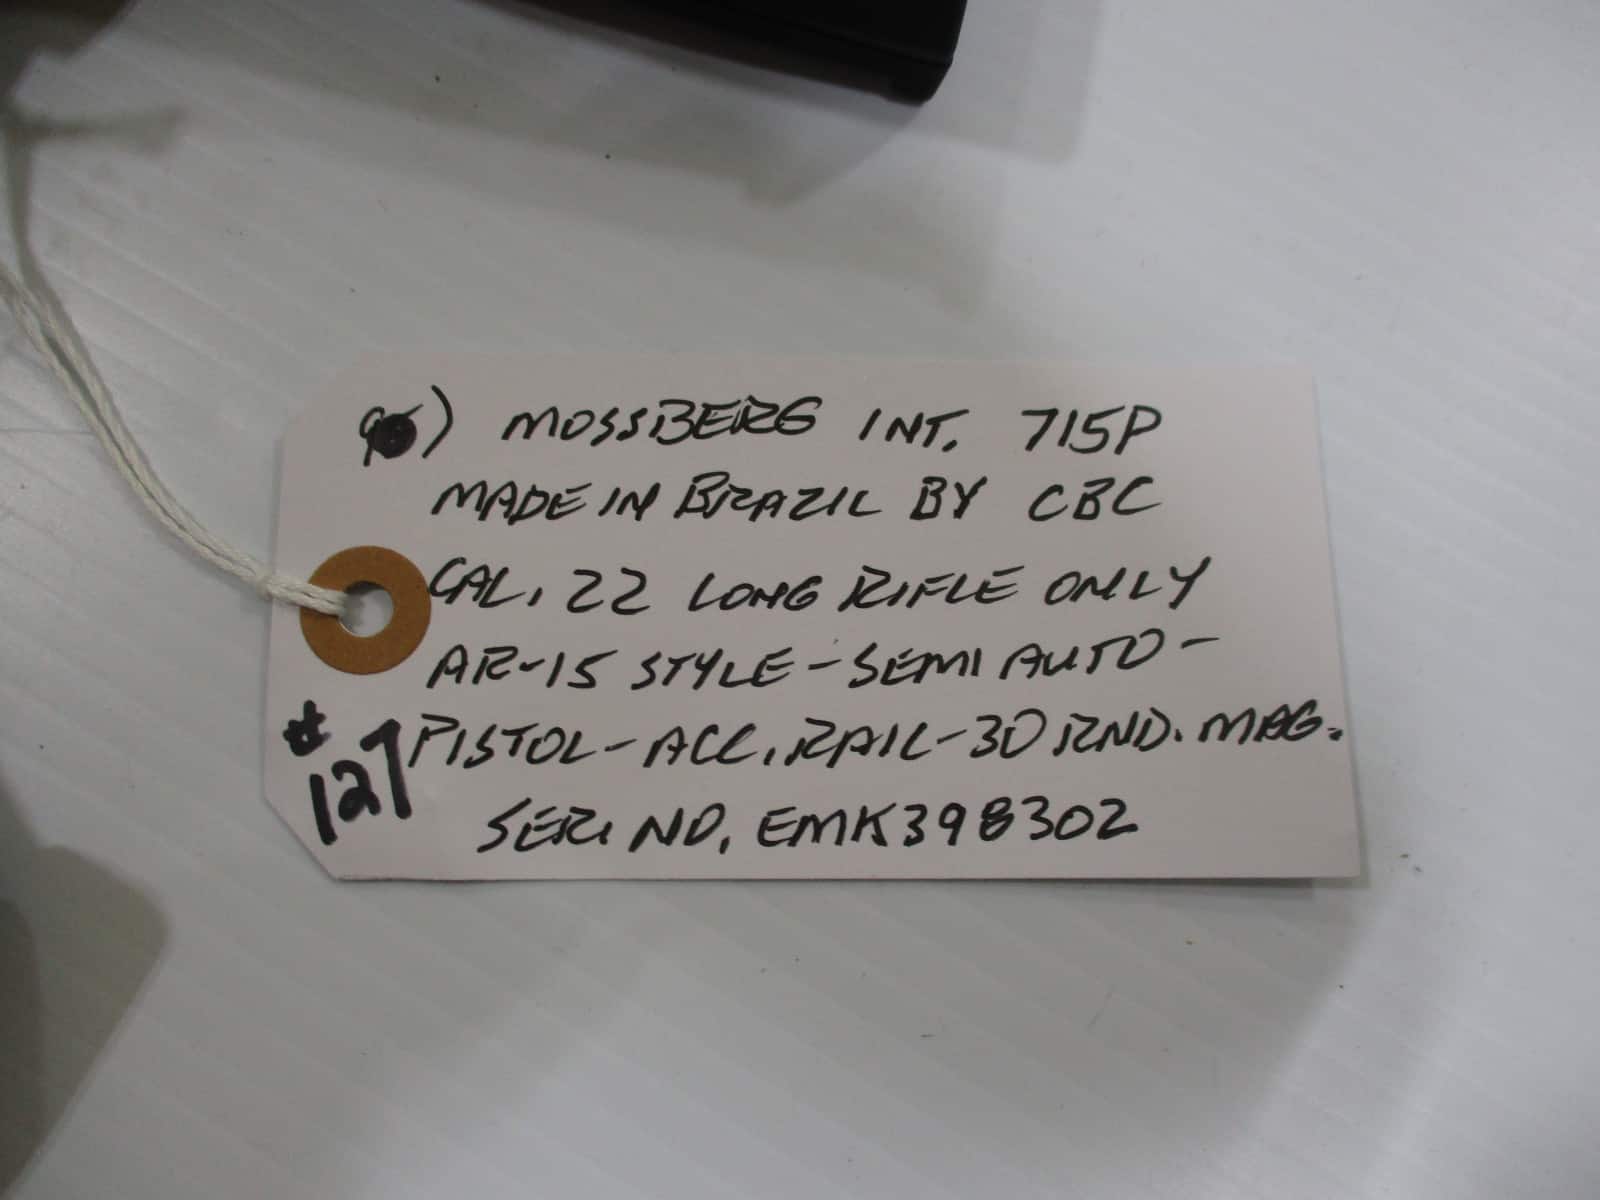 ) MOSSBERG INT. 715P
MADE IN BRAZIL BY CBC
CAL. 22 LONG RIFLE ONLY
AR-15 STYLE - SEMI AUTO -
PISTOL - ACC. RAIL - 30 RND. MAG.
SER. NO. EMK398302
# 127